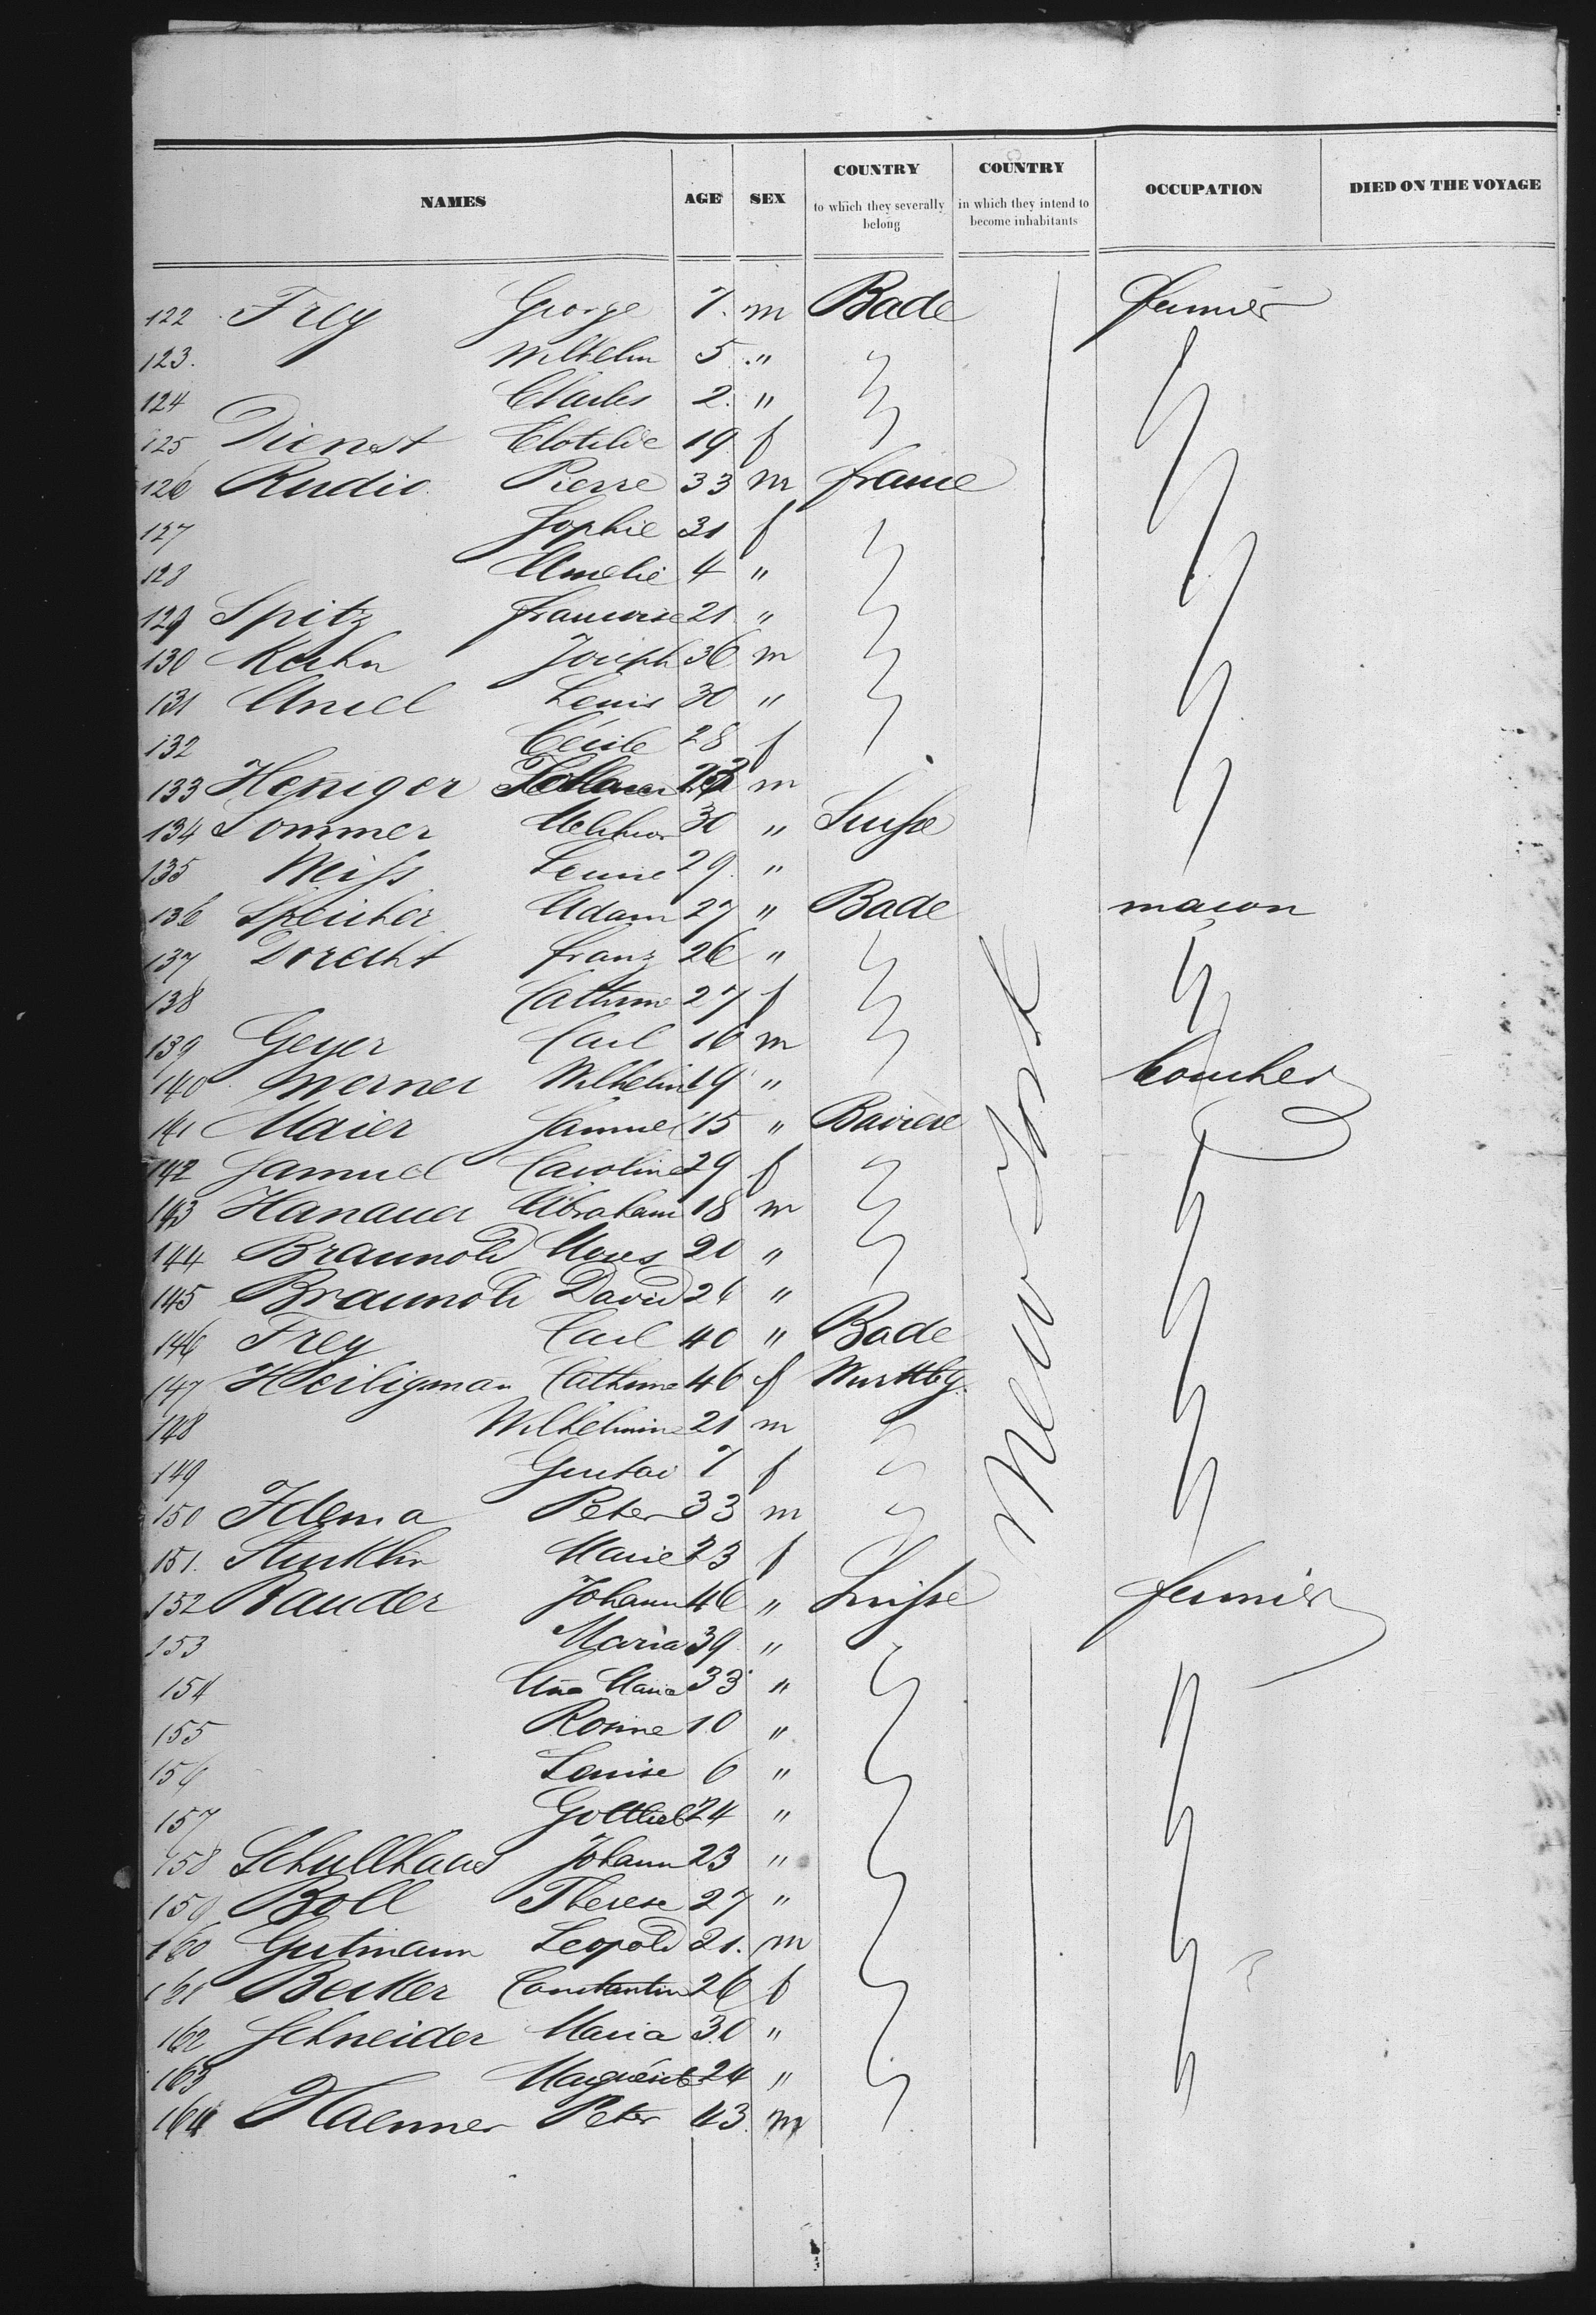 NAMES AGE SEX COUNTRY to which they severally belong COUNTRY in which they intend to become inhabitants OCCUPATION DIED ON THE VOYAGE
122 Frey George 7 m Bade fermier
123 Wilhelm 5 "
124 Charles 2 "
125 Dienst Clotilde 19 f
126 Rudio Pierre 33 m france
127 Sophie 31 f
128 Amelie 4 "
129 Spitz francoise 21 "
130 Kuhn Joseph 36 m
131 Amel Louis 30 "
132 Cécile 28 f
133 Heniger m
134 Sommer Melchior 30 " Suisse
135 Weiss 29 "
136 Speicher Adam 27 " Bade macon
137 Dorecht franz 26 "
138 Catherine 27 f
139 Geyer Carl 16 m
140 Werner Wilhelm 19 " boucher
141 Maier Samuel 15 " Baviere
142 Samuel Caroline 29 f
143 Hanauer Abraham 18 m
144 Braunold Moses 20 "
145 Braunold David 26 "
146 Frey Carl 40 " Bade
147 Heiligman Catherine 46 f Wurttbg.
148 Wilhelmine 21 m
149 Gustav 7 f
150 Idema Peter 33 m
151 Marie 23 f
152 Johann 46 " Suisse fermier
153 Maria 39 "
154 Ana Maria 33 "
155 Rosine 10 "
156 Louise 6 "
157 Gottlieb 24 "
158 Schullhaus Johann 23 "
159 Boll Therese 27 "
160 Gutmann Leopold 21 m
161 Becker Constantin 26 f
162 Schneider Maria 30 "
163 24 "
164 Haenner Peter 43 m
New-York